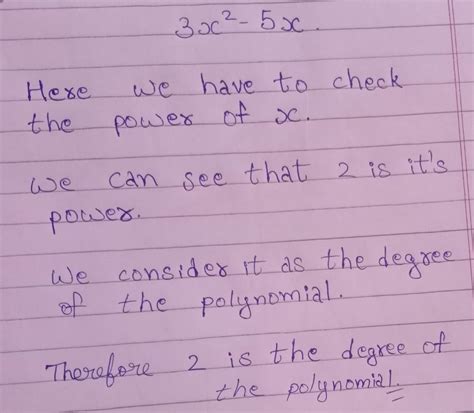 3x² - 5x.
Here we have to check
the power of x.
we can see that 2 is it's
power.
We consider it as the degree
of the polynomial.
Therefore 2 is the degree of
the polynomial.